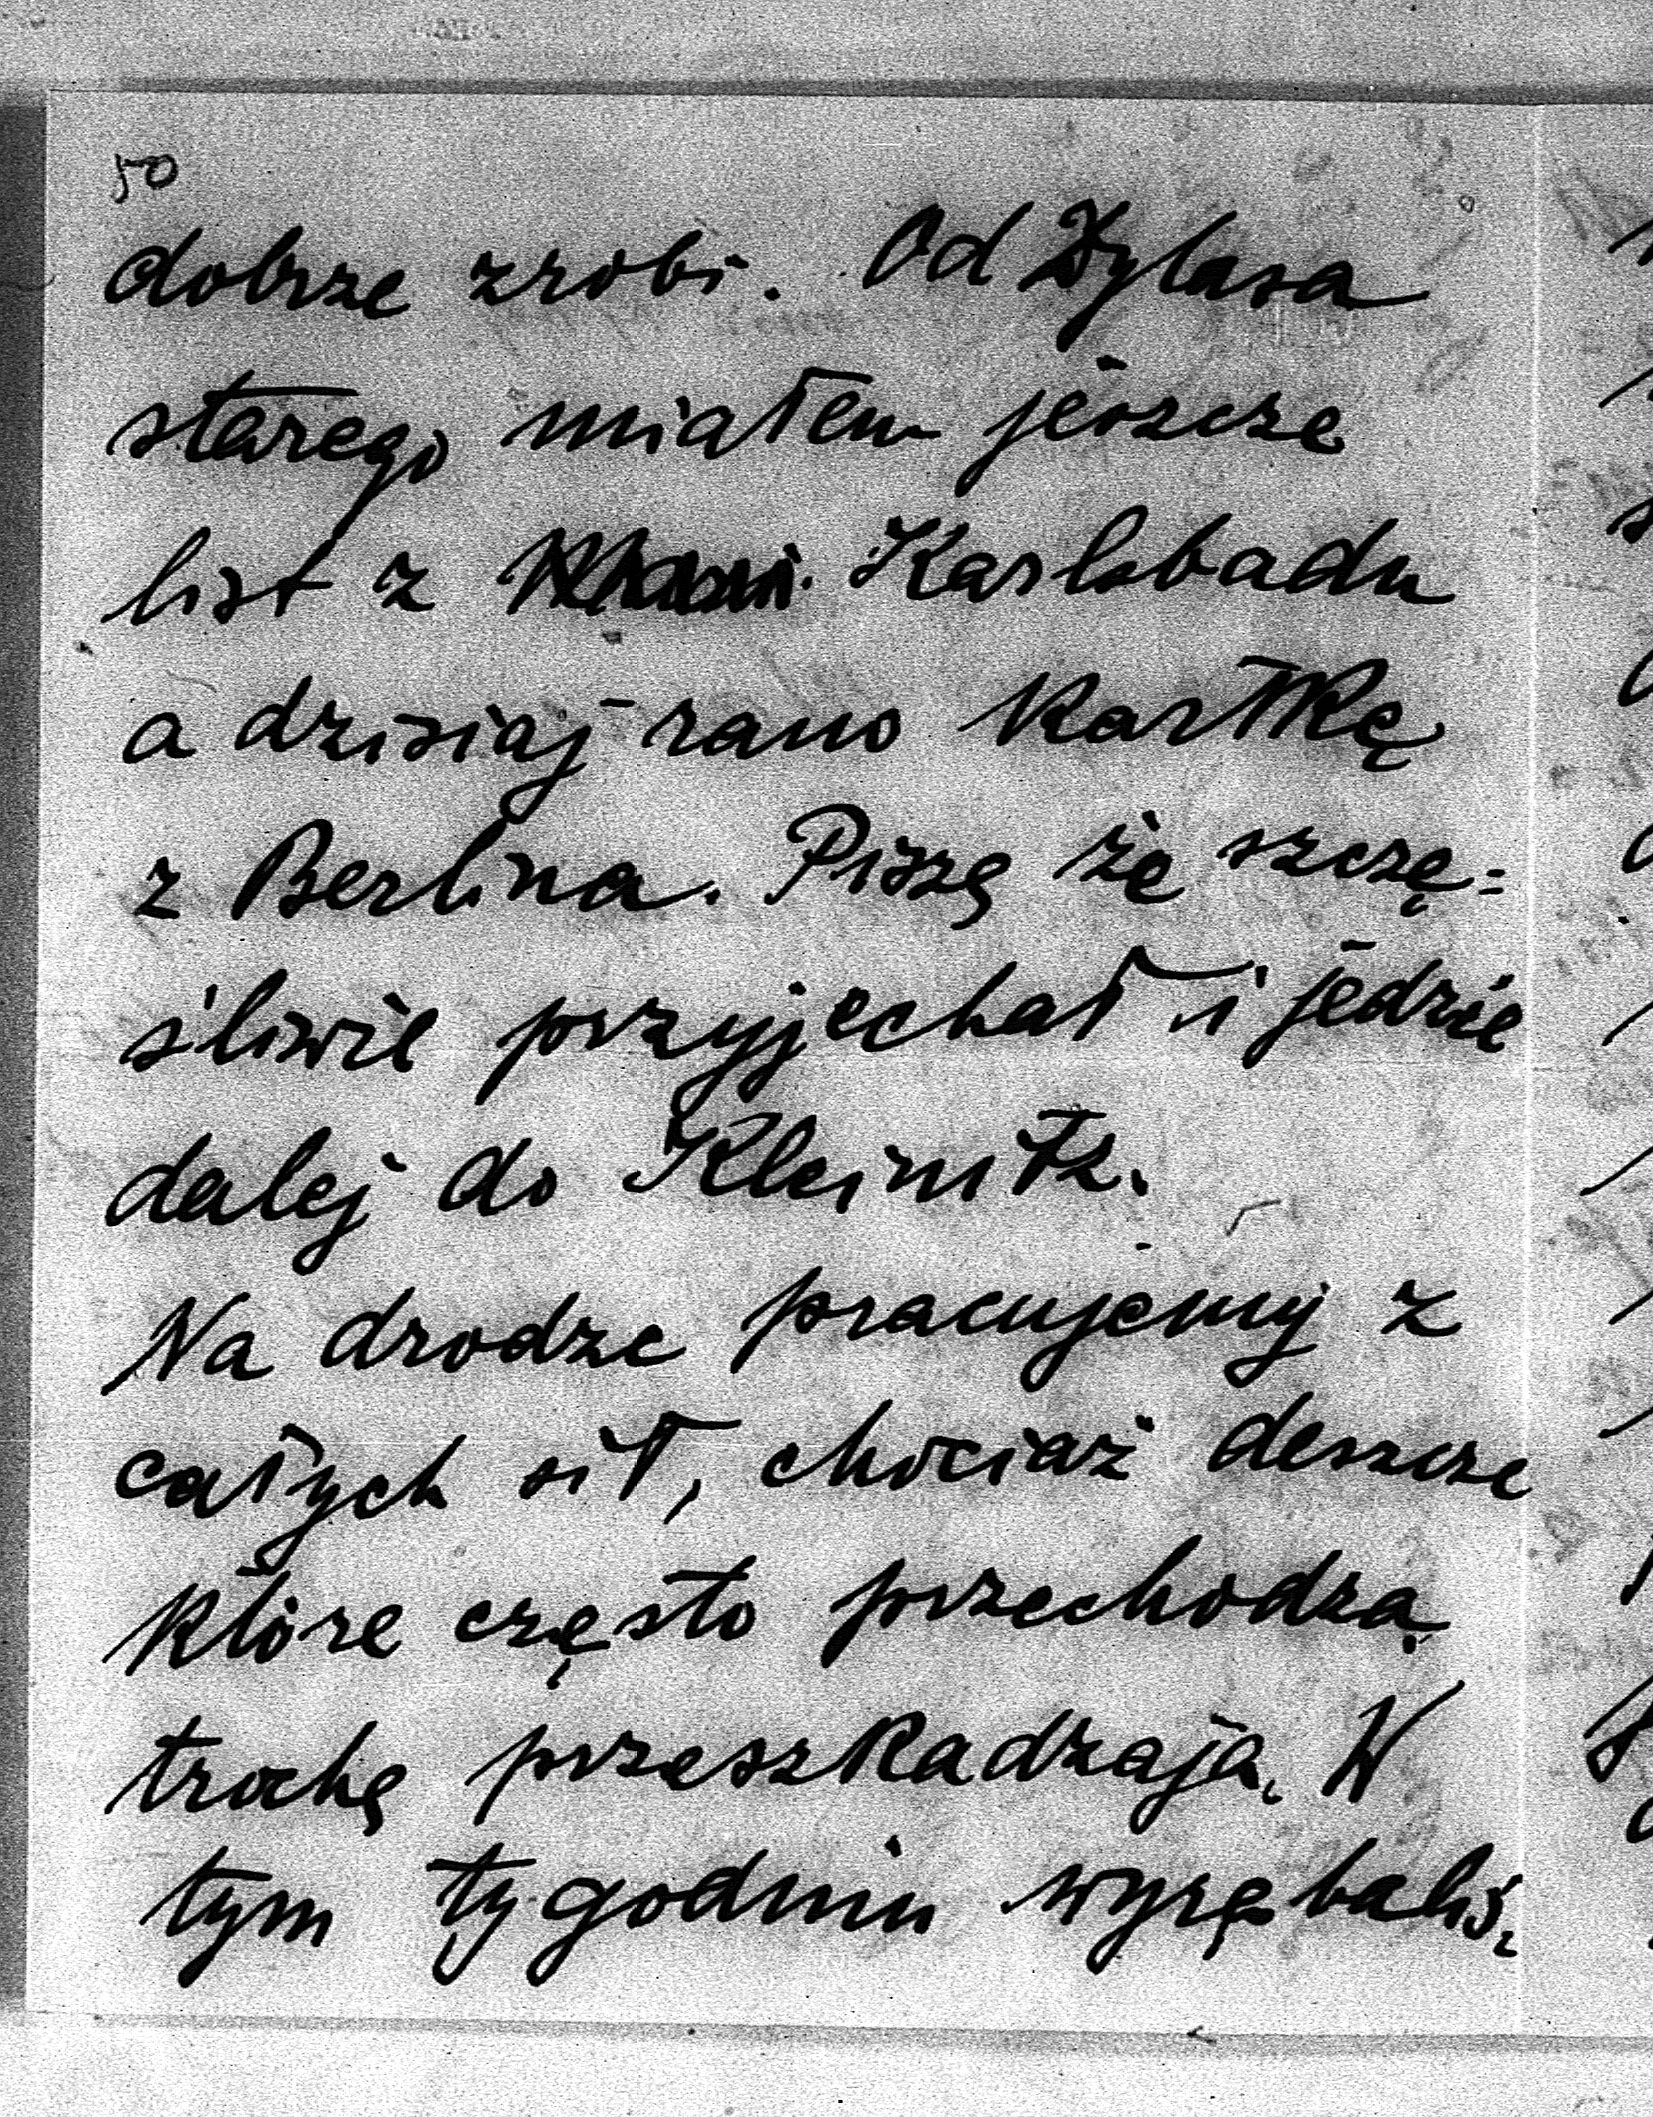 50
dobrze zrobi. Od Dylasa
starego miałem jeszcze
list z Karlsbadu
a dzisiaj rano kartkę
z Berlina. Piszę że szczę=
śliwie przyjechał i jedzie
dalej do Kleinitz.
Na drodze pracujemy z
całych sił, chociaż deszcze
które często przechodzą
trochę przeszkadzają. W
tym tygodniu wyrębaliś.